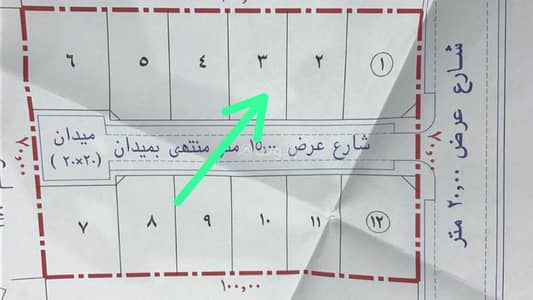 ٦ ٥ ٤ ٣ ٢ ١
شارع عرض ١٥,٠٠ متر منتهى بميدان
ميدان
(٢٠×٢٠)
٧ ٨ ٩ ١٠ ١١ ١٢
١٠٠,٠٠
٨٠,٠٠
٨٠,٠٠
شارع عرض ٢٠,٠٠ متر